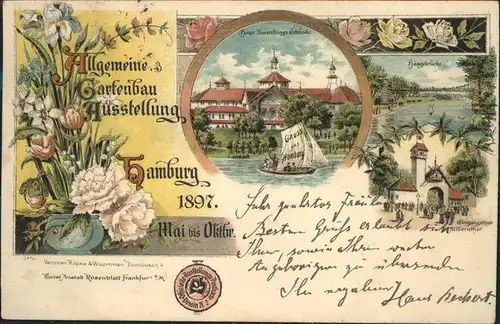 Allgemeine
Gartenbau
Ausstellung
Hamburg
1897.
Mai bis Oktbr.
Haupt Ausstellungs Gebäude
Hängebrücke
Gruss
aus
Hamburg
Eingangsthor
Millernthor
Sehr geehrtes Fräulein
Besten Gruss erlaubt sich
Ihnen, sowie Ihren werten
Angehörigen zu übersenden
Ihr ergebener Hans Beckert.
Vertreter Höpke & Woermann
Kunst Anstalt Rosenblatt Frankfurt a/M